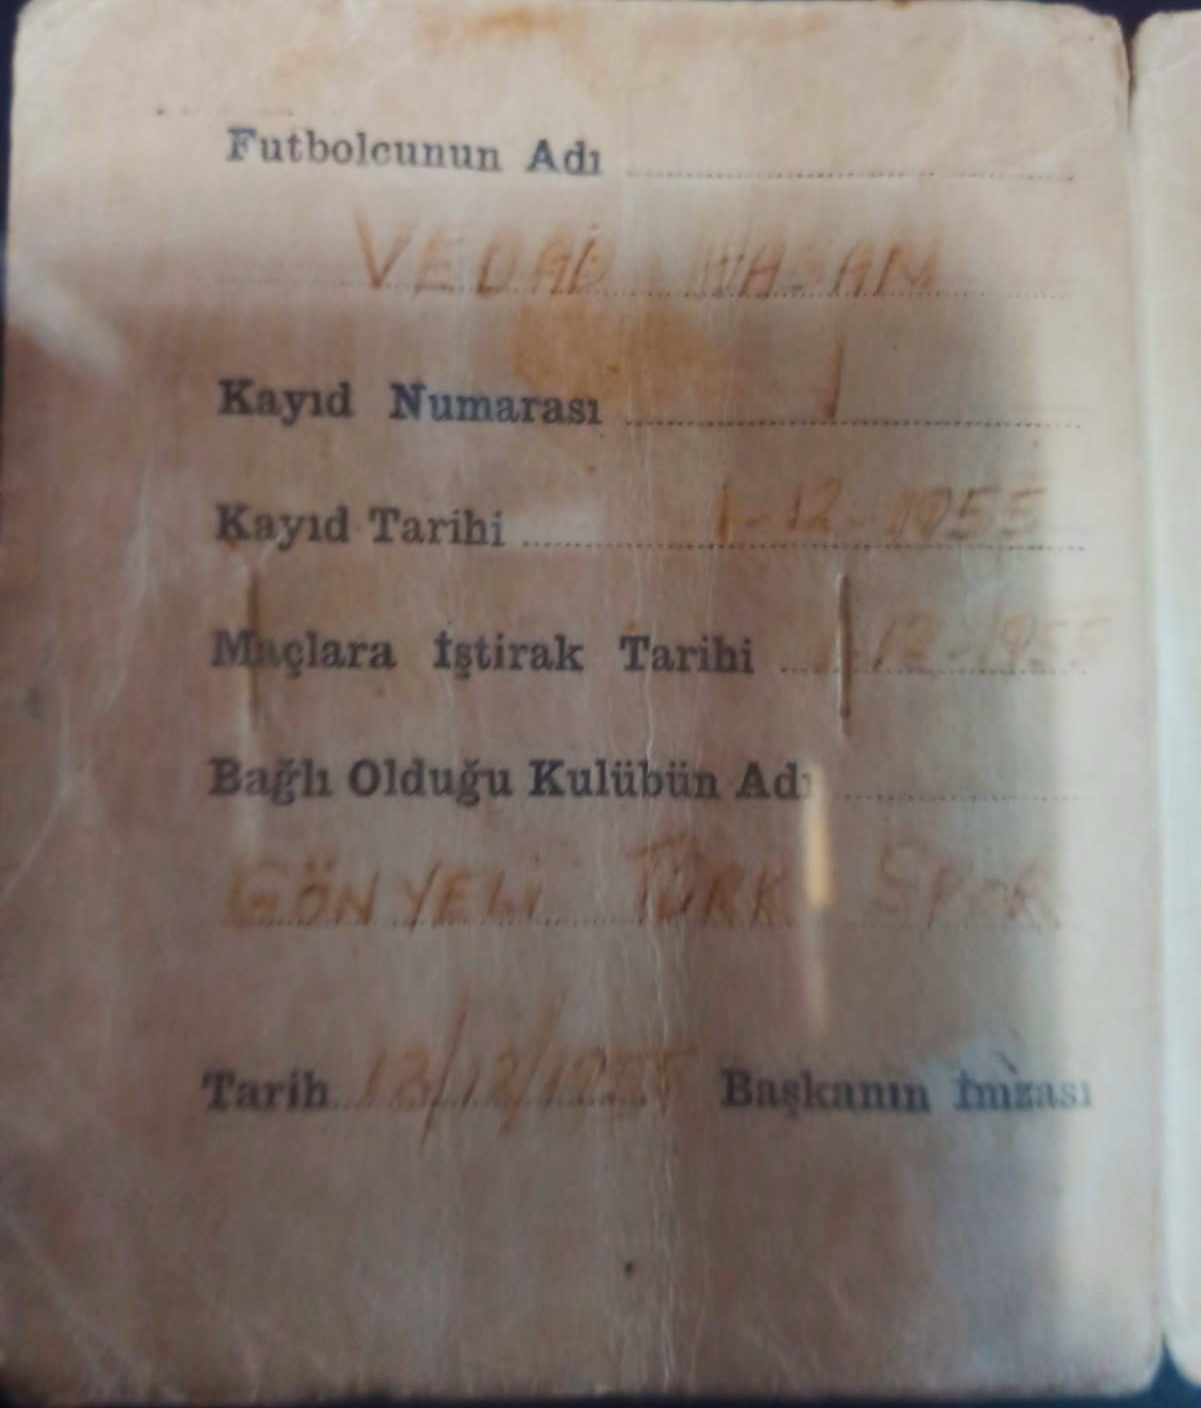 Futbolcunun Adı
VEDAD HASAN
Kayıd Numarası 1
Kayıd Tarihi 1-12-1955
Maçlara İştirak Tarihi 1-12-1955
Bağlı Olduğu Kulübün Adı
GÖNYELİ TÜRK SPOR
Tarih 13/12/1955 Başkanın İmzası